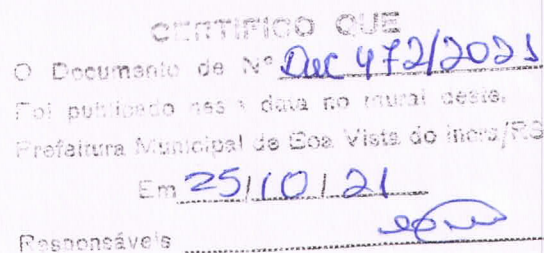 CERTIFICO QUE
O Documento de Nº Dec 472/2021
Foi publicado nesta data no mural desta.
Prefeitura Municipal de Boa Vista do Incra/RS
Em 25/10/21
Responsáveis